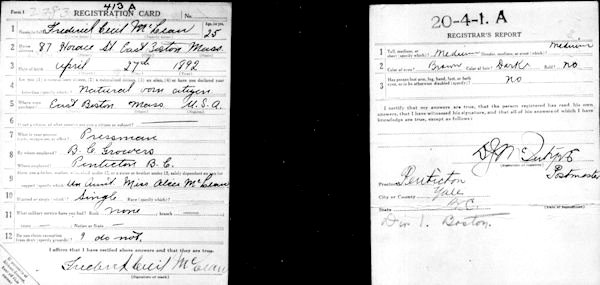 Form 1
413 A
REGISTRATION CARD
1 Name in full Frederick Cecil McLean Age, in yrs. 25
2 Home 87 Horace St East Boston Mass
3 Date of birth April 27th 1892
4 Are you (1) a natural-born citizen, (2) a naturalized citizen, (3) an alien, (4) or have you declared your
intention (specify which)? Natural born citizen
5 Where were you born? East Boston Mass U.S.A.
6 If not a citizen, of what country are you a citizen or subject?
7 What is your present trade, occupation, or office? Pressman
8 By whom employed? B. C. Growers
Where employed? Penticton B. C.
9 Have you a father, mother, wife, child under 12, or a sister or brother under 12, solely dependent on you for
support (specify which)? an Aunt Miss McLean
10 Married or single (which)? Single Race (specify which)?
11 What military service have you had? Rank none branch
years Nation or State
12 Do you claim exemption from draft (specify grounds)? I do not.
I affirm that I have verified above answers and that they are true.
Frederick Cecil McLean
(Signature or mark)
20-4-1. A
REGISTRAR'S REPORT
1 Tall, medium, or short (specify which)? Medium Slender, medium, or stout (which)? medium
2 Color of eyes? Brown Color of hair? Dark Bald? No
3 Has person lost arm, leg, hand, foot, or both eyes, or is he otherwise disabled (specify)? No
I certify that my answers are true, that the person registered has read his own
answers, that I have witnessed his signature, and that all of his answers of which I have
knowledge are true, except as follows:
Postmaster
Precinct Penticton
City or County Yale
State B.C.
(Date of registration)
Div 1. Boston.